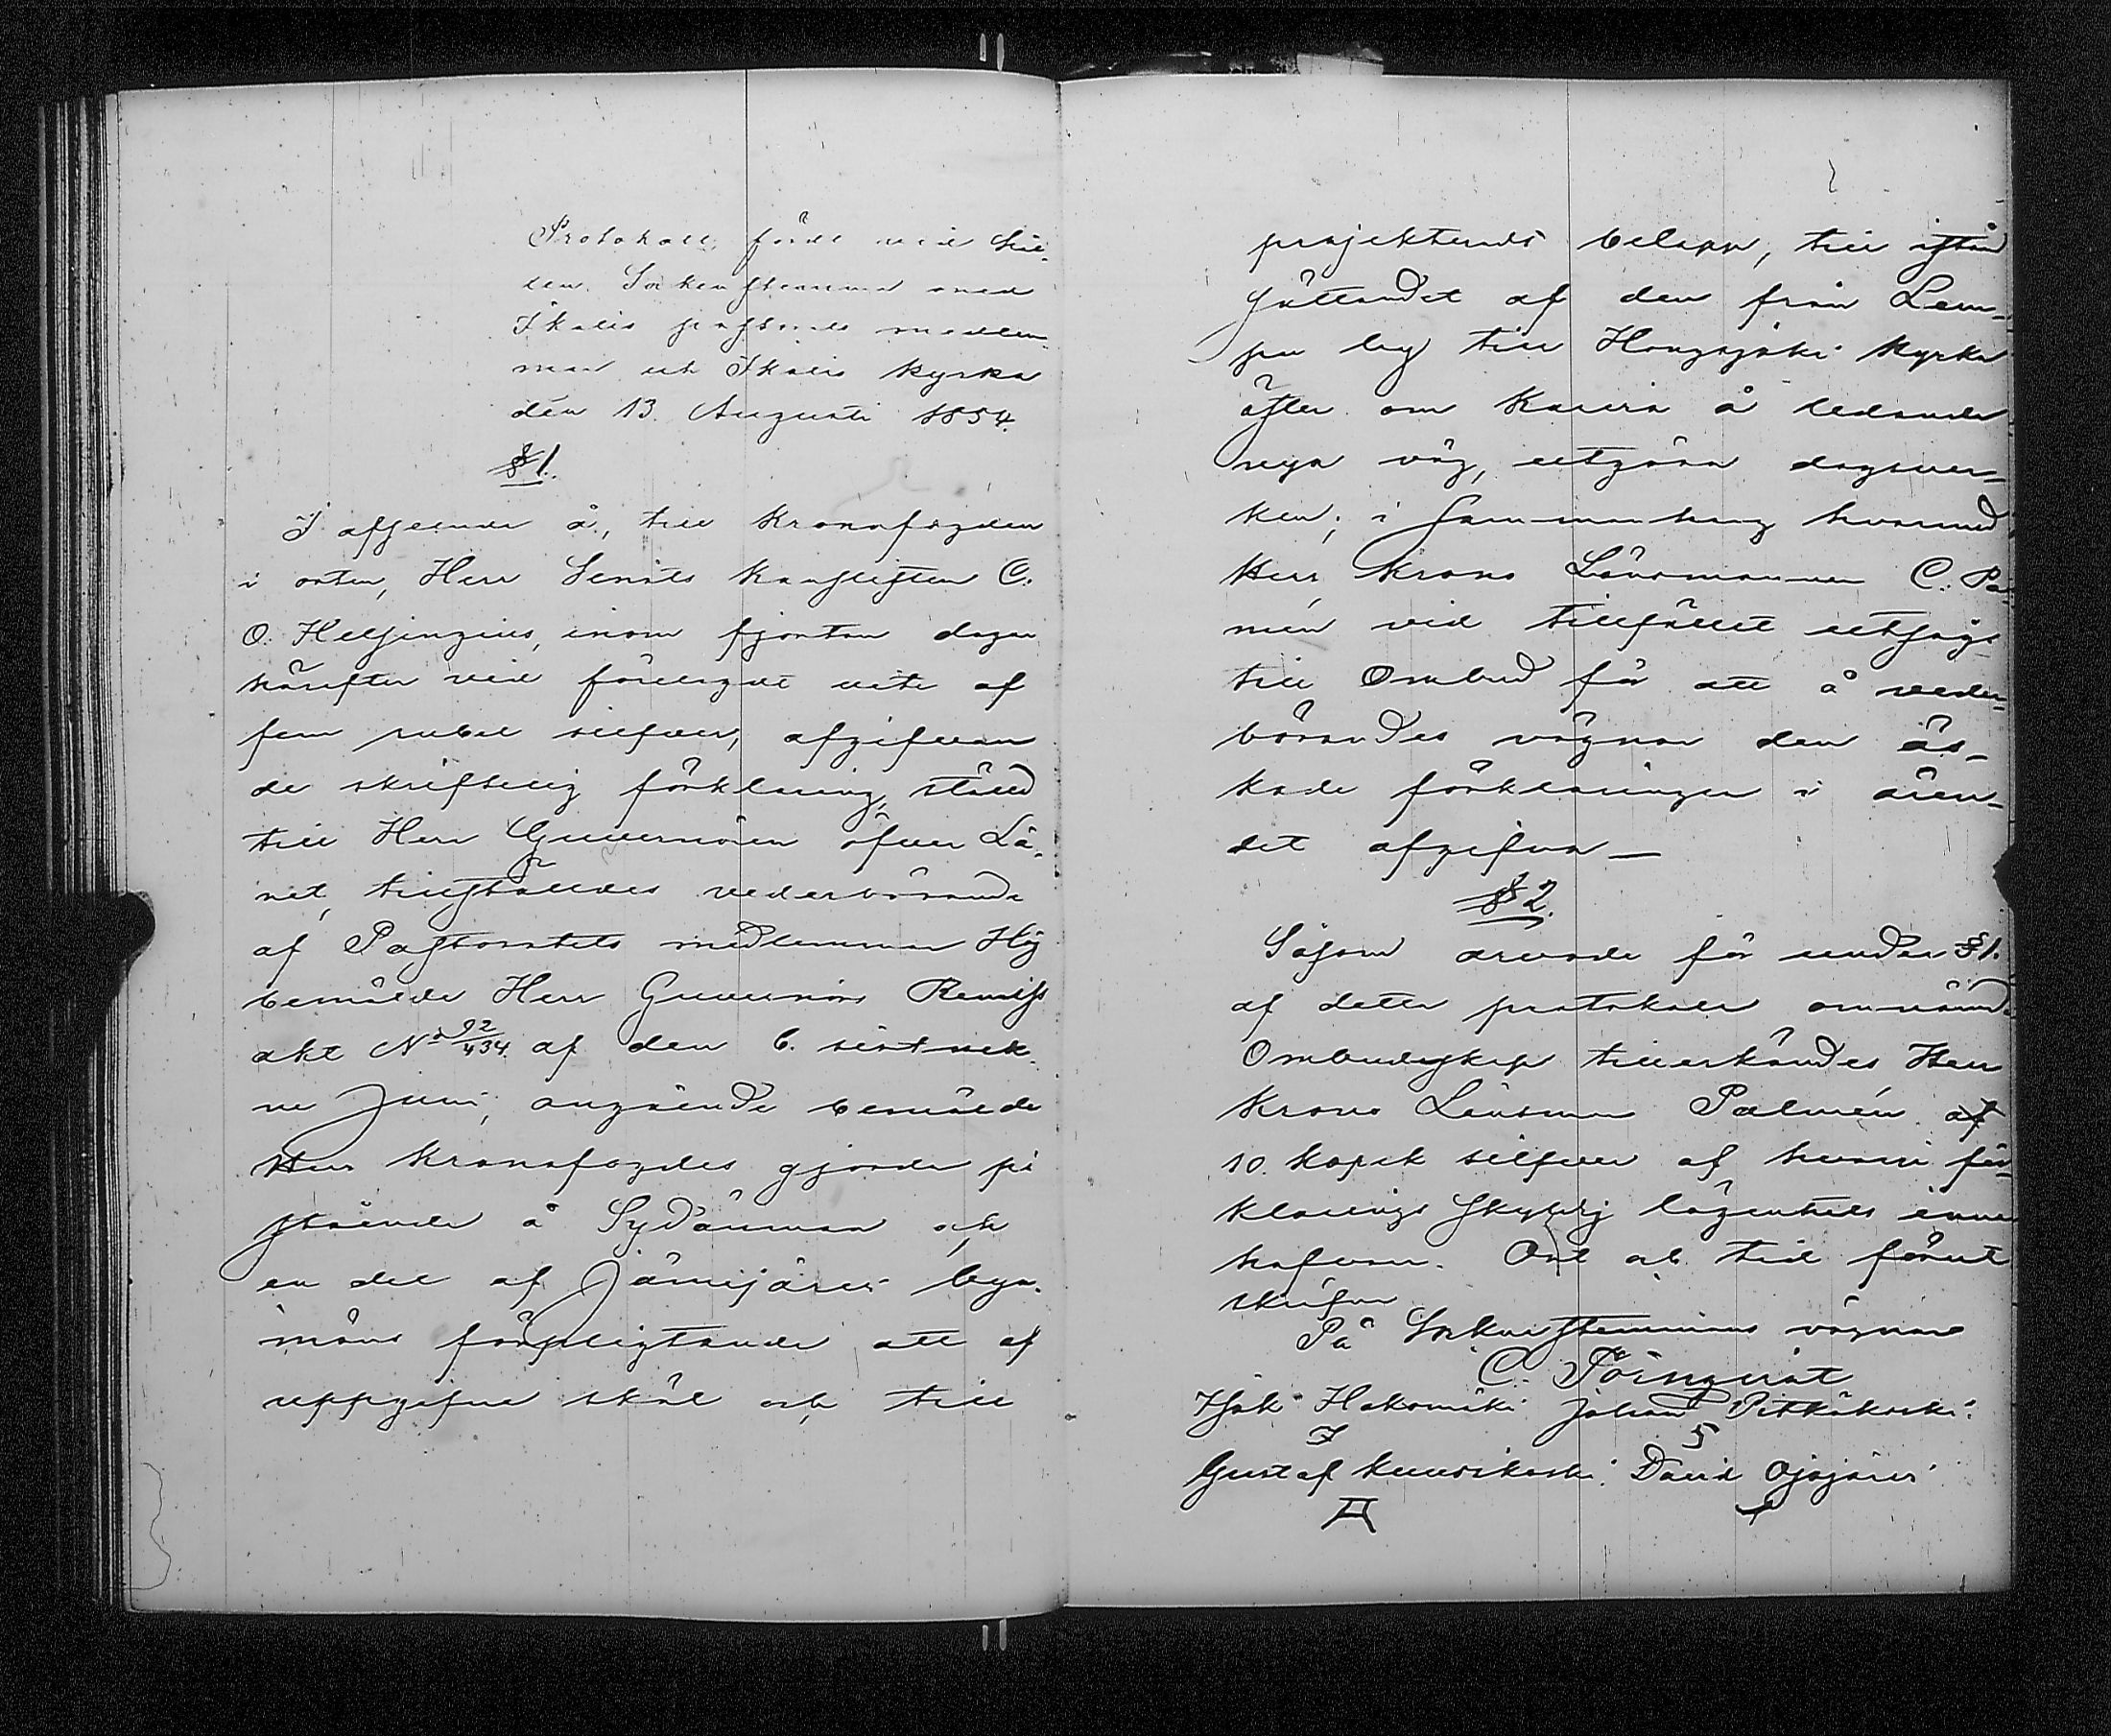 Protokoll, fördt vid hål-
len Sockenstemma med
Ikalis pastorats medlem-
mar uti Ikalis kyrka
den 13. Augusti 1854.
§ 1.
I afseende å, till Kronofogden
i orten, Herr Senats Kanslisten C.
O. Helsingius, inom fjorton dagar
härefter vid förelagdt vite af
fem rubel silfver, afgifvan-
de skriftelig förklaring, ställd
till Herr Guvernören öfver Lä-
net, tillställdes vederbörande
af Pastoratets medlemmar Hög
bemälde Herr Guvernörs Remiss
akt No 92/434. af den 6. sistvek-
ne Juni, angående bemälde
Herr Kronofogdes gjorda på
stående å Sydänmaa och
en del af Jämijärvi bya-
mäns förpligtande att af
uppgifne skäl och till
projekterade belopp, till istånd
sättandet af den från Lem-
pa by till Hongojoki kyrka
öfter om Kairis å ledande
nya väg, utgöra dagsver-
ken; i sammanhang hvarmed
Herr Krono Länsmannen C. Pal-
mén vid tillfället utsågs
till Ombud för att å veder-
börandes vägnar den äs-
kade förklaringen i ären-
det afgifva —
§ 2.
Såsom arvode för under § 1.
af detta protokoll omnämd
Ombudsskap tillerkändes Herr
Krono Länsman Palmén af
10. kopek silfver af hvarje för-
klarings skyldig lägenhets inne
hafvare. Ort och tid förut
skrifne
På Sockenstemmans vägnar
C. Törnqvist
Isak Hakomäki Johan Pitkäkoski
Gustaf Kuusikoski David Ojajärvi